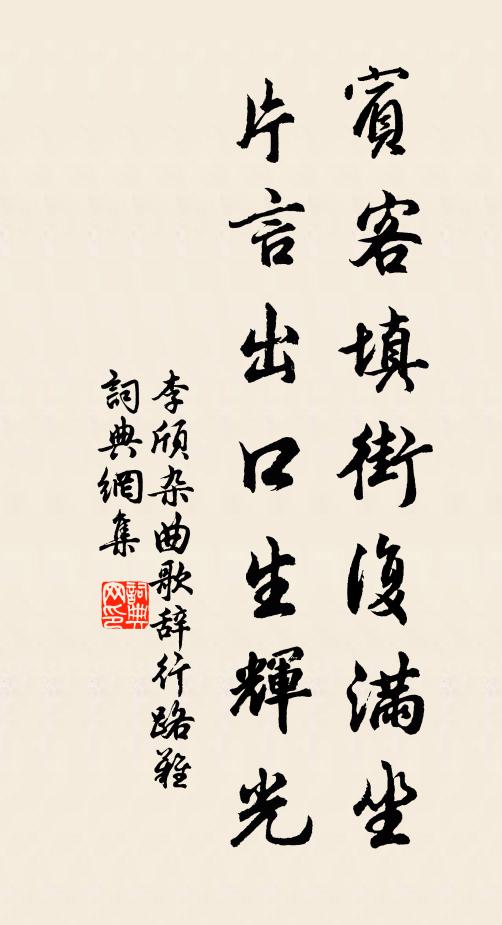 賓客填街復滿坐
片言出口生輝光
李頎杂曲歌辞行路難
詞典網集
詞典网印